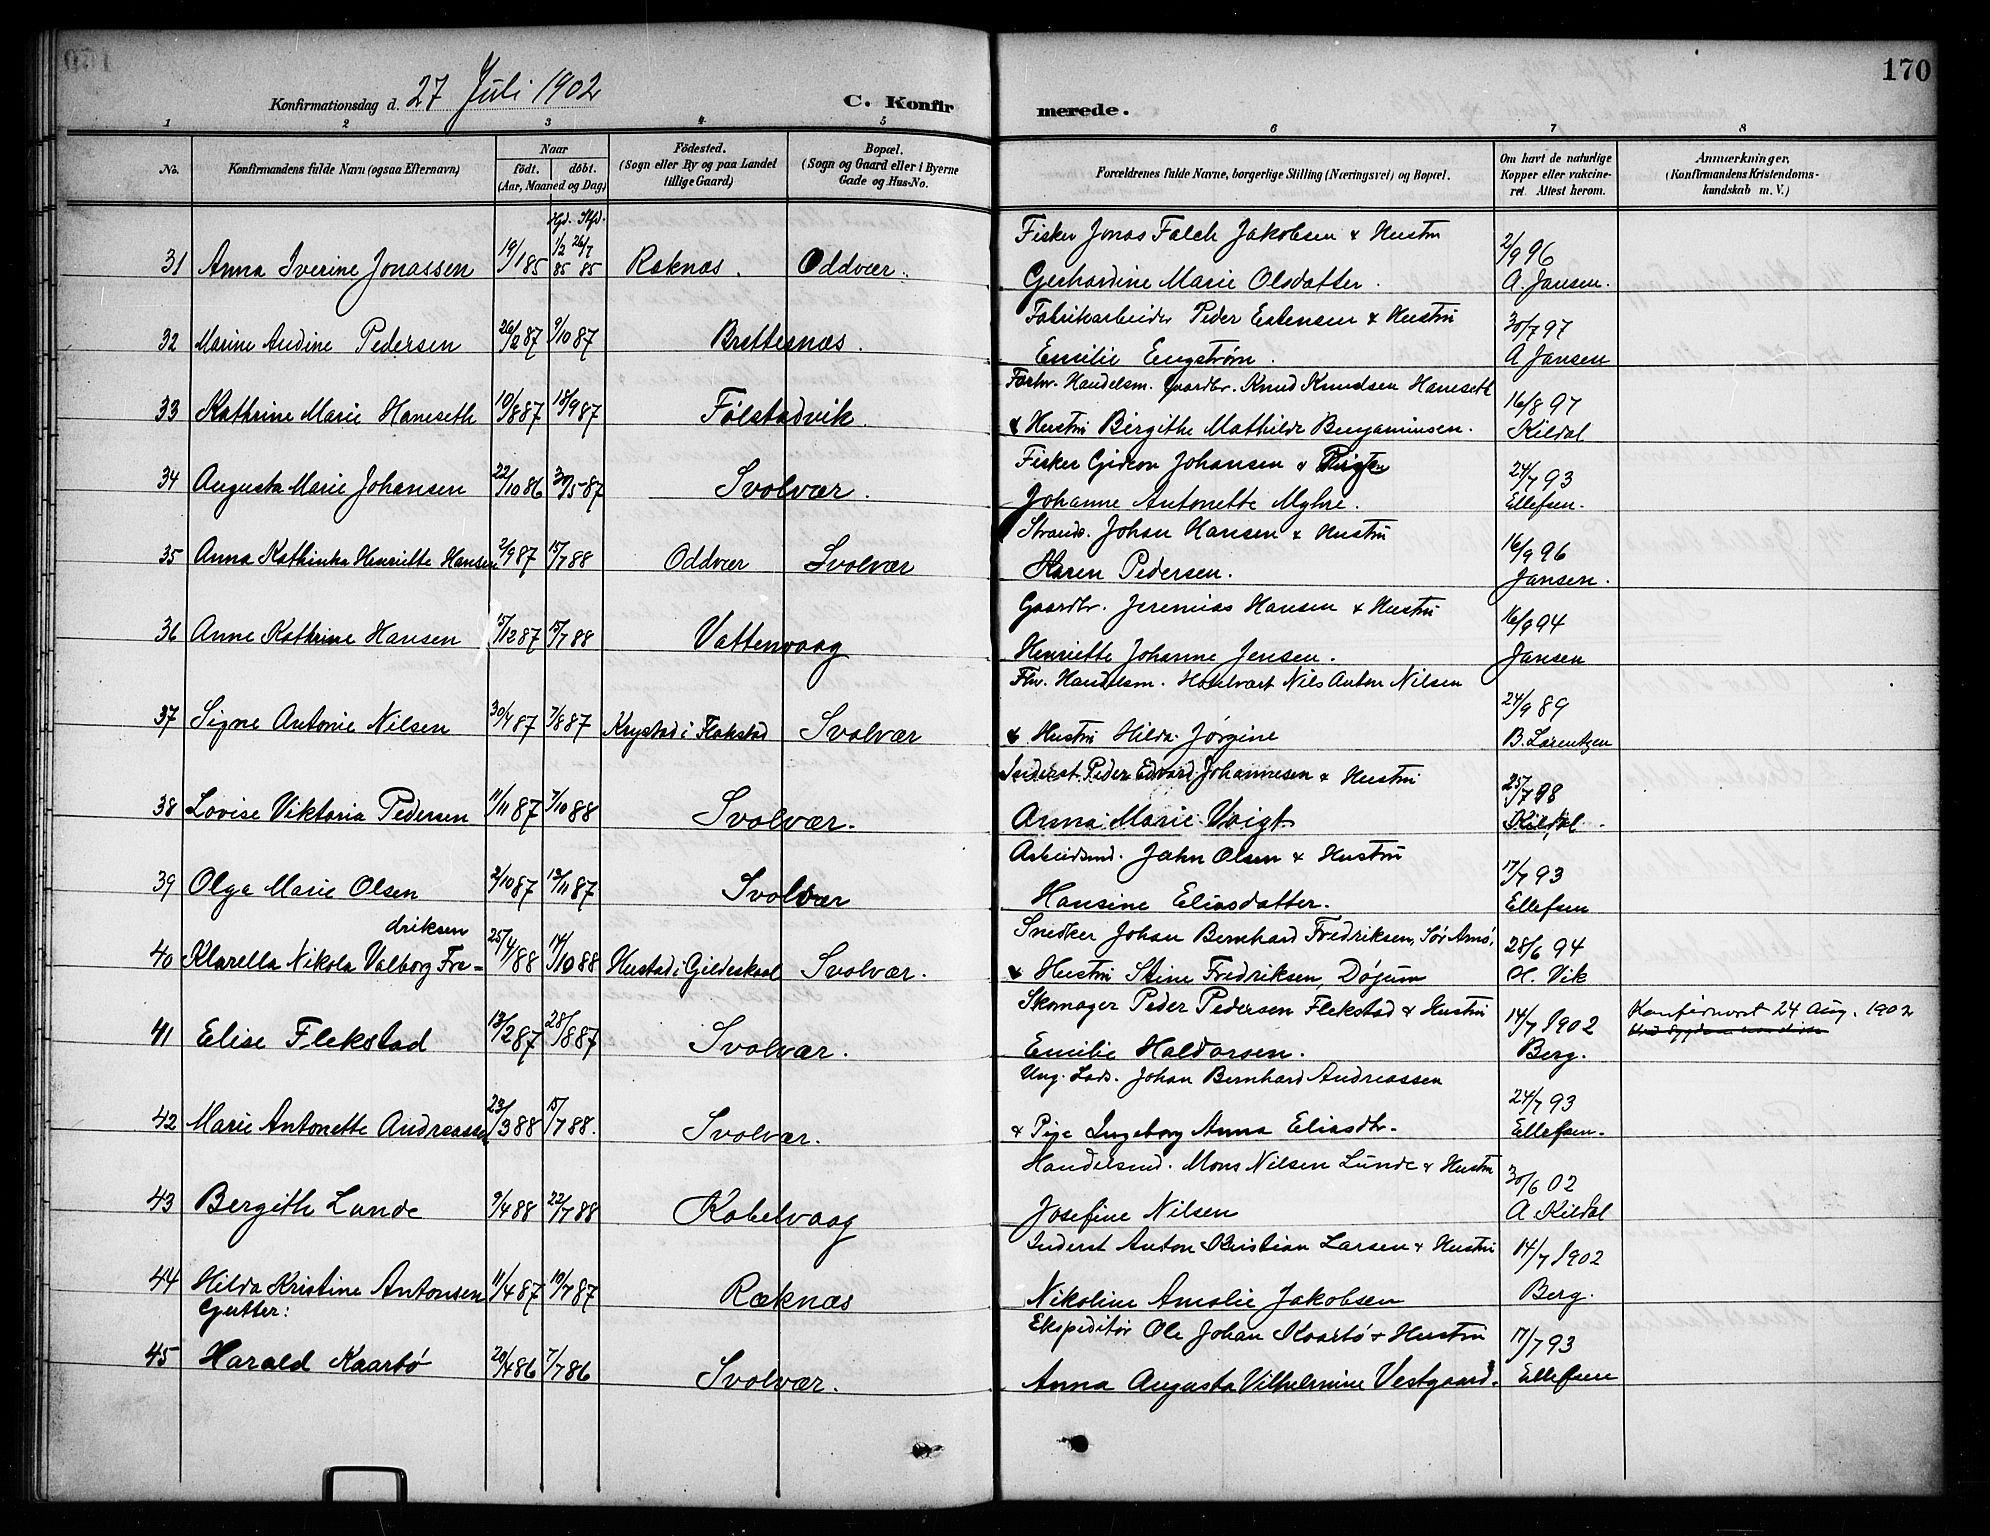 170
Konfirmationsdag d. 27 Juli 1902
C. Konfirmerede.
1 2 3 4 5 6 7 8
No. Konfirmandens fulde Navn (ogsaa Efternavn) Naar født. døbt. (Aar, Maaned og Dag) Födested. (Sogn eller By og paa Landet tillige Gaard) Bopæl. (Sogn og Gaard eller i Byerne Gade og Hus-No. Forældrenes fulde Navne, borgerlige Stilling (Næringsvei) og Bopæl. Om havt de naturlige Kopper eller vakcineret. Attest herom. Anmærkninger, (Konfirmandens Kristendomskundskab m. V.)
hjd. Stfd.
Fisker Jonas Falch Jakobsen & Hustru
31 Anna Iverine Jonassen 19/1 85 1/2 85 26/7 85 Raknas. Oddvær. Gerhardine Marie Olsdatter. 2/9 96 A. Jansen.
Fabrikarbeider Peder Estensen & Hustru
32 Marine Andine Pedersen 26/2 87 9/10 87 Brettesnæs. Emilie Engstrøm. 30/7 97 A Jansen
Forhv. Handelsm. Gaardbr. Knud Knudsen Haneseth
33 Kathrine Marie Haneseth 10/8 87 18/9 87 Følstadvik. & Hustru Birgithe Mathilde Benjaminsen. 16/8 97 Kildal
Fisker Gideon Johansen &
34 Augusta Marie Johansen 22/10 86 30/5 87 Svolvær. Johanne Antonette Myhre. 24/7 93 Ellefsen.
Strands. Johan Hansen & Hustru
35 Anna Kathinka Henriette Hansen 2/9 87 15/7 88 Oddvær Svolvær Karen Pedersen. 16/9 96 Jansen.
Gaardbr. Jeremias Hansen & Hustru
36 Anne Kathrine Hansen 15/12 87 15/7 88 Vattenvaag Henriette Johanne Jensen. 16/9 94 Jansen
Fhv. Handelsm. Hotelvært Nils Anton Nilsen
37 Signe Antonie Nilsen 30/4 87 7/8 87 Krystad i Flakstad Svolvær & Hustru Hilda Jørgine 24/9 89 B. Lorentzen
Inderst Peder Edvard Johannesen & Hustru
38 Lovise Viktoria Pedersen 11/11 87 7/10 88 Svolvær. Anna Marie Voigt 25/7 98 Kildal.
Arbeidsmd. John Olsen & Hustru
39 Olga Marie Olsen 2/10 87 13/11 87 Svolvær Hansine Eliasdatter. 17/7 93 Ellefsen
driksen Snedker Johan Bernhard Fredriksen, Sør Arnø,
40 Klarella Nikola Valborg Fre- 25/4 88 14/10 88 Hustad i Gildeskaal Svolvær. & Hustru Stine Fredriksen, Døjum 28/6 94 H. Vik
Skomager Peder Pedersen Flekstad & Hustru
41 Elise Flekstad 13/2 87 28/8 87 Svolvær. Emilie Haldorsen. 14/7 1902 Berg. Konfirmert 24 Aug. 1902
Ung. Lods. Johan Bernhard Andreassen
42 Marie Antonette Andreassen 23/3 88 15/7 88. Svolvær. & Pige Ingeborg Anna Eliasdtr. 24/7 93 Ellefsen.
Handelsmd. Mons Nilsen Lunde & Hustru
43 Bergith Lunde 9/4 88 22/7 88 Kabelvaag Josefine Nilsen 30/6 02 A Kildal
Inderst Anton Kristian Larsen & Hustru
44 Hilda Kristine Antonsen 11/4 87 10/7 87 Ræknæs Nikoline Amalie Jakobsen 14/7 1902 Berg.
Gutter:
Ekspeditør Ole Johan Kaarbø & Hustru
45 Harald Kaarbø 20/4 86 7/7 86 Svolvær. Anna Augusta Vilhelmine Vestgaard. 17/7 93 Ellefsen